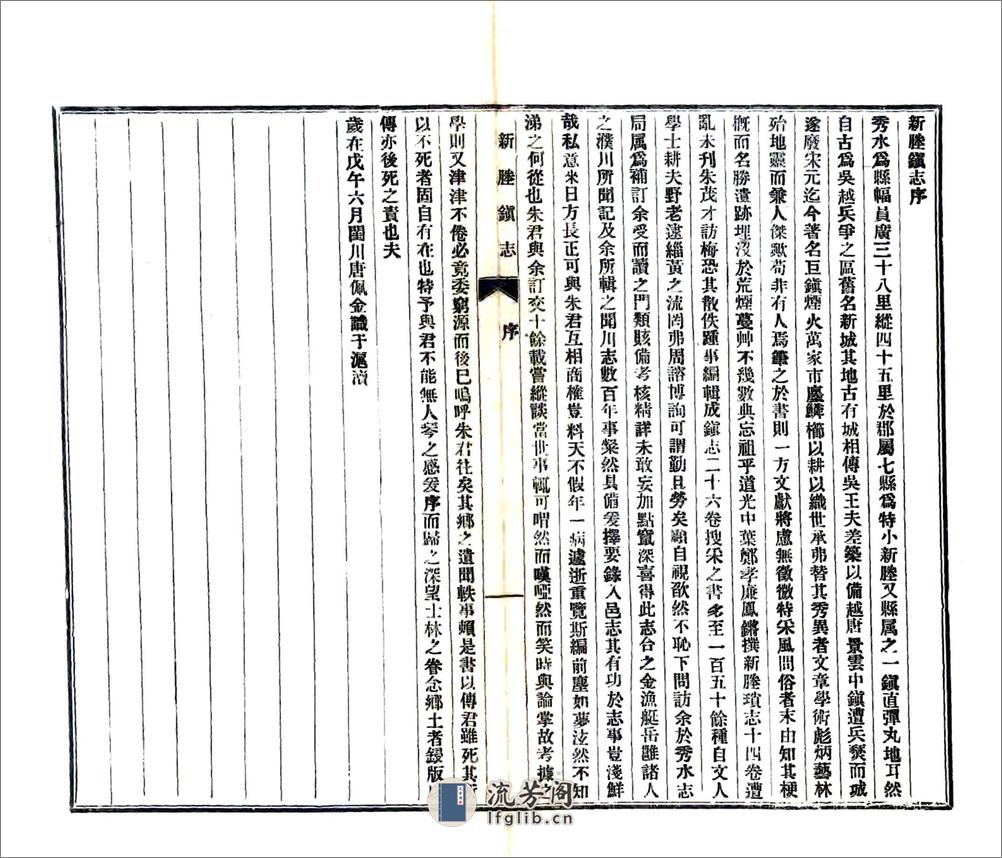 新塍鎭志序
秀水爲縣幅員廣三十八里縱四十五里於郡屬七縣爲特小新塍又縣屬之一鎭直彈丸地耳然
自古爲吳越兵爭之區舊名新城其地古有城相傳吳王夫差築以備越唐景雲中鎭遭兵燹而城
遂廢宋元迄今著名巨鎭煙火萬家市廛鱗櫛以耕以織世承弗替其秀異者文章學術彪炳藝林
殆地靈而兼人傑歟苟非有人焉筆之於書則一方文獻將慮無徵微特采風問俗者末由知其梗
槪而名勝遺跡埋沒於荒煙蔓艸不幾數典忘祖乎道光中葉鄭孝廉鳳鏘撰新塍瑣志十四卷遭
亂未刋朱茂才訪梅恐其散佚踵事編輯成鎭志二十六卷搜采之書多至一百五十餘種自文人
學士耕夫野老逮緇黃之流罔弗周諮博詢可謂勤且勞矣顧自視欿然不恥下問訪余於秀水志
局属爲補訂余受而讀之門類賅備考核精詳未敢妄加點竄深喜得此志合之金漁艇岳雝諸人
之濮川所聞記及余所輯之聞川志數百年事粲然具備爰擇要錄入邑志其有功於志事豈淺鮮
哉私意來日方長正可與朱君互相商榷豈料天不假年一病遽逝重覽斯編前塵如夢泫然不知
涕之何從也朱君與余訂交十餘載嘗縱談當世事輒可喟然而嘆啞然而笑時與論掌故考據之
新塍鎭志
序
一
學則又津津不倦必竟委窮源而後已嗚呼朱君往矣其鄕之遺聞軼事賴是書以傳君雖死其
以不死者固自有在也特予與君不能無人琴之感爰序而歸之深望士林之眷念鄕土者鋟版
傳亦後死之責也夫
歲在戊午六月聞川唐佩金識于滬瀆
流芳阁
lfglib.cn